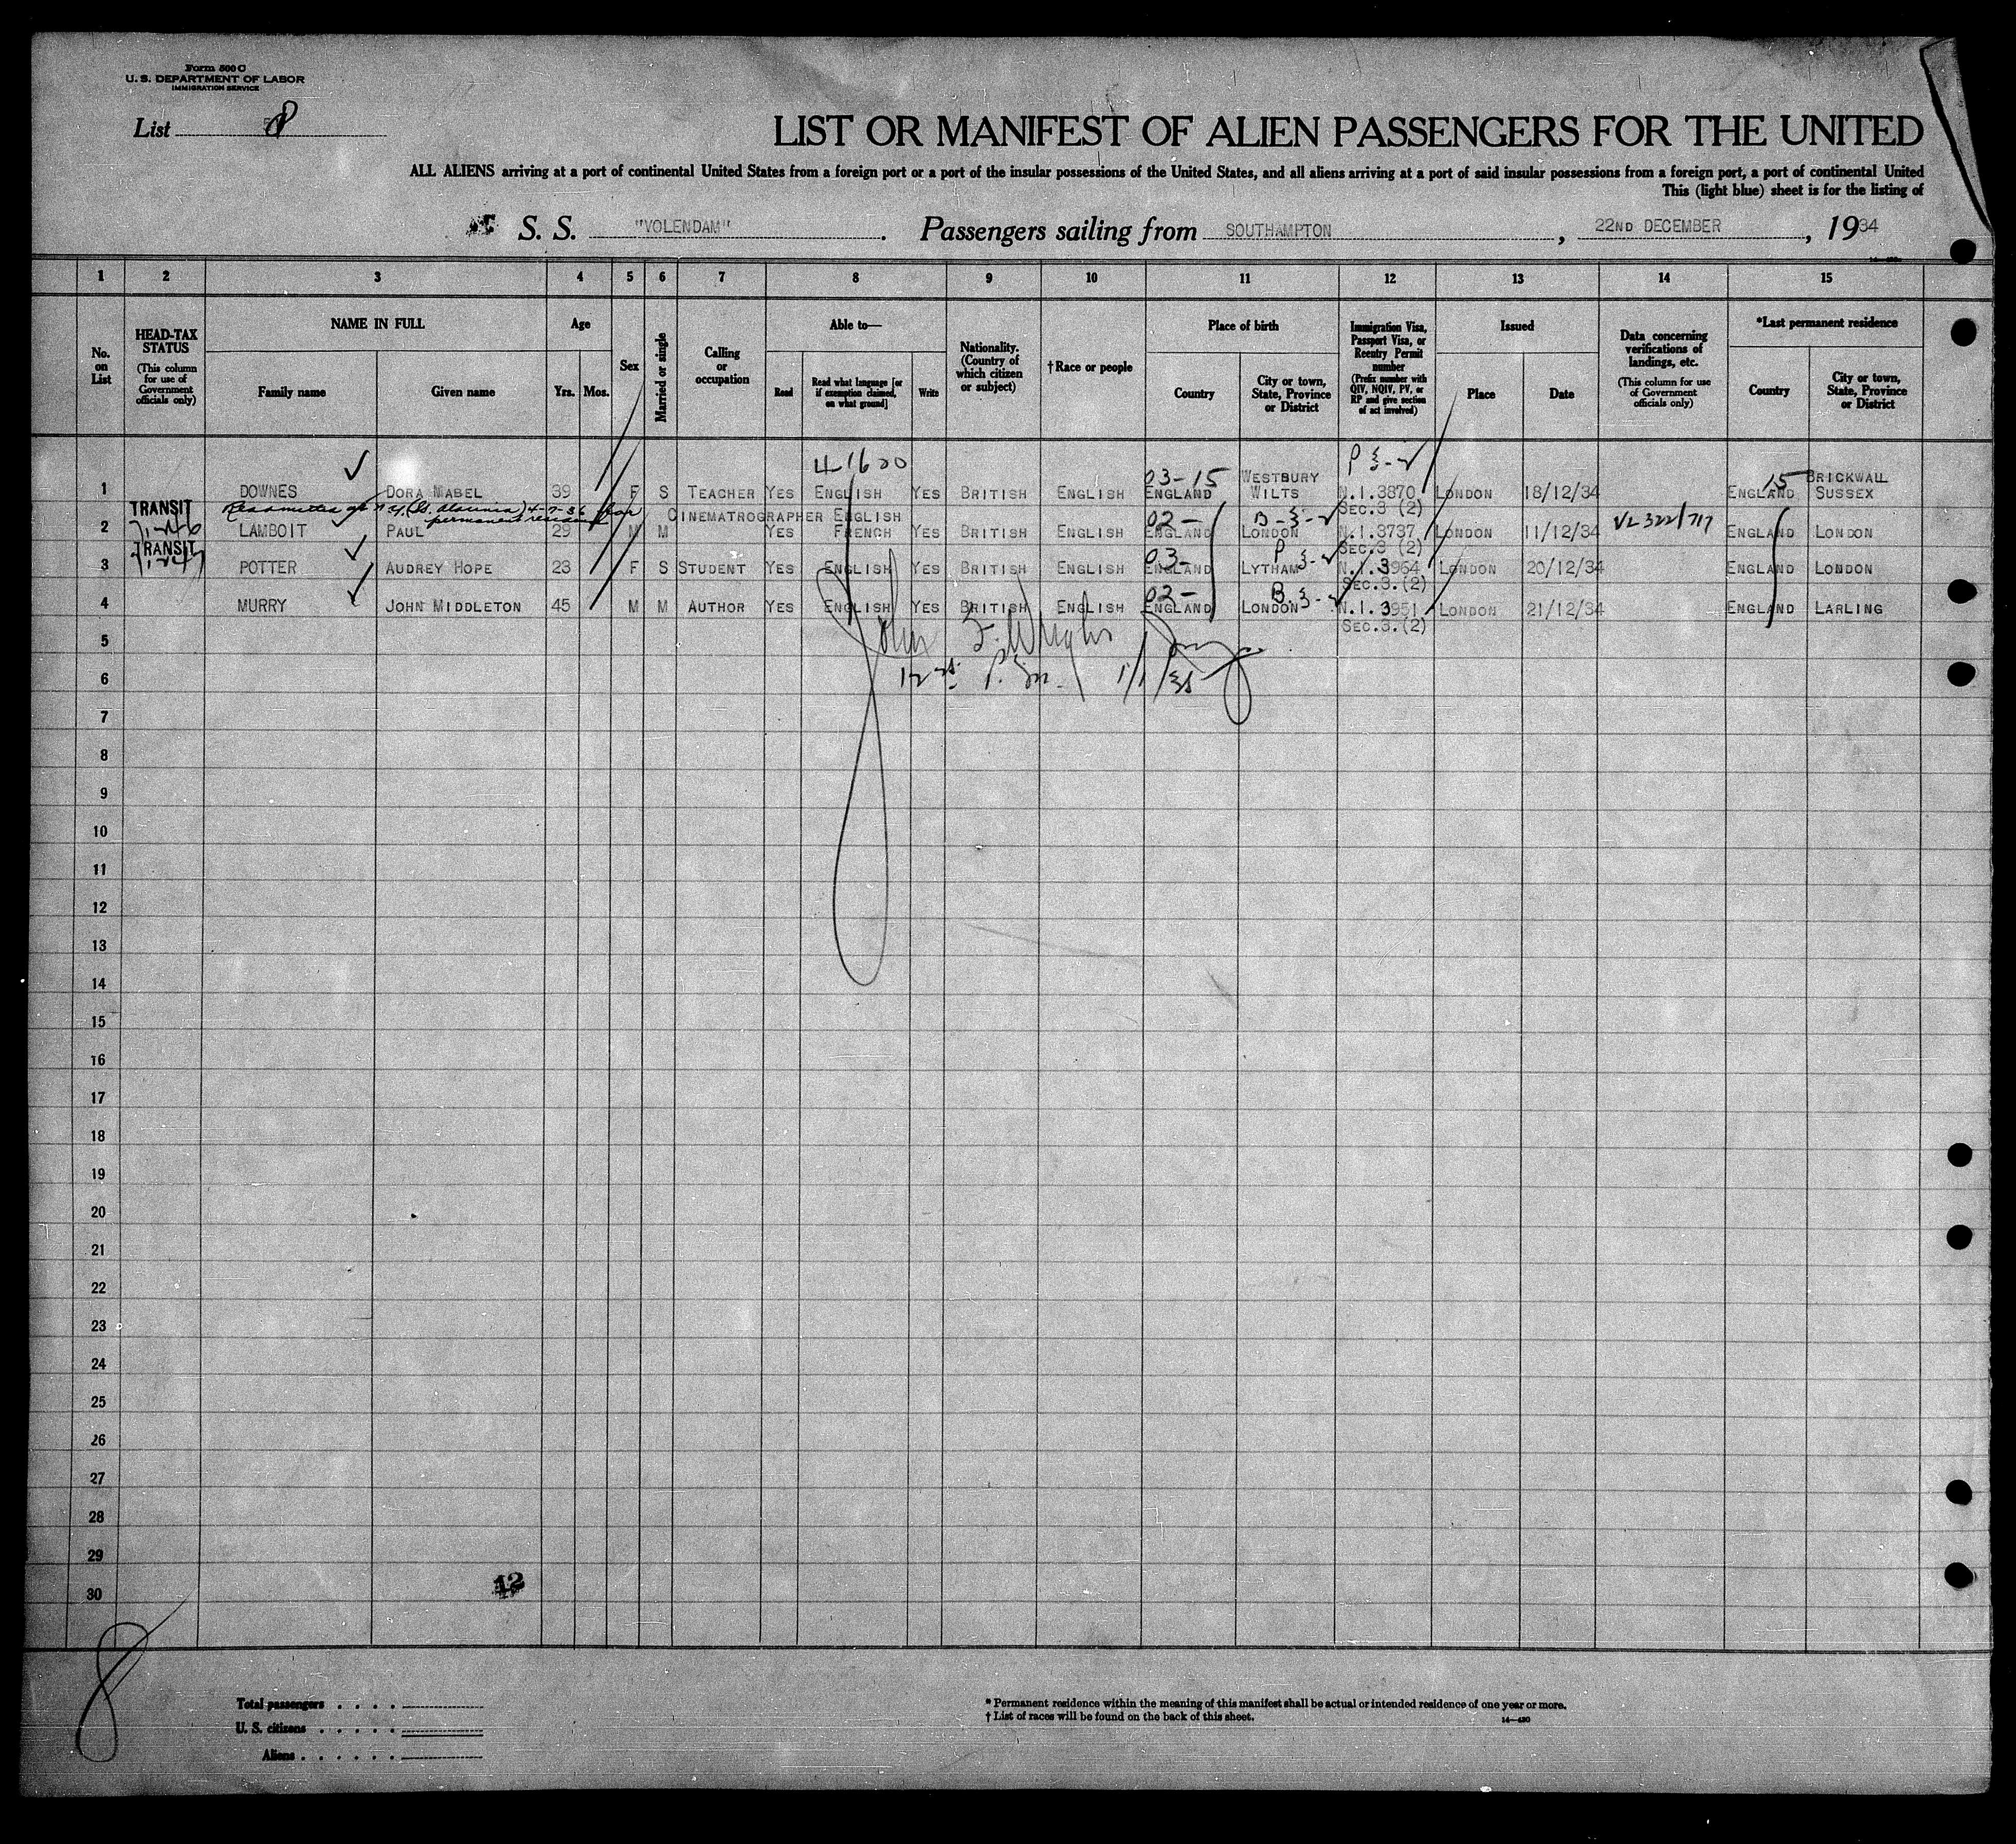 Form 500 C
U. S. DEPARTMENT OF LABOR
IMMIGRATION SERVICE
List 8
LIST OR MANIFEST OF ALIEN PASSENGERS FOR THE UNITED
ALL ALIENS arriving at a port of continental United States from a foreign port or a port of the insular possessions of the United States, and all aliens arriving at a port of said insular possessions from a foreign port, a port of continental United
This (light blue) sheet is for the listing of
S. S. "VOLENDAM". Passengers sailing from SOUTHAMPTON, 22ND DECEMBER, 1934
1 2 3 4 5 6 7 8 9 10 11 12 13 14 15
No. on List
HEAD-TAX STATUS
(This column for use of Government officials only)
NAME IN FULL
Family name Given name
Age
Yrs. Mos.
Sex
Married or single
Calling or occupation
Able to—
Read
Read what language [or if exemption claimed, on what ground]
Write
Nationality. (Country of which citizen or subject)
† Race or people
Place of birth
Country
City or town, State, Province or District
Immigration Visa, Passport Visa, or Reentry Permit number
(Prefix number with QIV, NQIV, PV, or RP and give section of act involved)
Issued
Place Date
Data concerning verifications of landings, etc.
(This column for use of Government officials only)
*Last permanent residence
Country
City or town, State, Province or District
4-1620
03-15 WESTBURY 15 BRICKWALL
1 DOWNES DORA MABEL 39 F S TEACHER YES ENGLISH YES BRITISH ENGLISH ENGLAND WILTS N.I.3870 LONDON 18/12/34 ENGLAND SUSSEX
SEC.3 (2)
TRANSIT
Readmitted at N.Y. (SS. Alaunia) 4-7-36 for permanent residence
CINEMATROGRAPHER ENGLISH 02- VL 322/717
2 LAMBOIT PAUL 29 M M YES FRENCH YES BRITISH ENGLISH ENGLAND LONDON N.I.3737 LONDON 11/12/34 ENGLAND LONDON
SEC.3 (2)
TRANSIT 03-
3 POTTER AUDREY HOPE 23 F S STUDENT YES ENGLISH YES BRITISH ENGLISH ENGLAND LYTHAM N.I.3964 LONDON 20/12/34 ENGLAND LONDON
SEC.3.(2)
02-
4 MURRY JOHN MIDDLETON 45 M M AUTHOR YES ENGLISH YES BRITISH ENGLISH ENGLAND LONDON N.I.3951 LONDON 21/12/34 ENGLAND LARLING
SEC.3.(2)
5
John F. Wright
6
1/1/35
7
8
9
10
11
12
13
14
15
16
17
18
19
20
21
22
23
24
25
26
27
28
29
12
30
8
Total passengers . . . .
U. S. citizens . . . . .
Aliens . . . . . .
* Permanent residence within the meaning of this manifest shall be actual or intended residence of one year or more.
† List of races will be found on the back of this sheet.
14—430